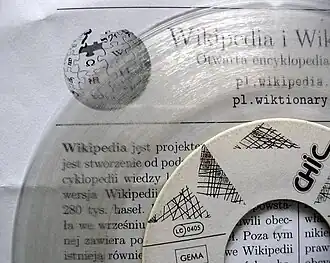 Wikipedia i Wi
Otwarta encyklopedia
pl.wikipedia.
pl.wiktionary
Wikipedia jest projekte
jest stworzenie od pod
cyklopedii wiedzy
wersja Wikipedii
280 tys. haseł.
ła we wrześniu
nej zawiera po
istnieją równie
CHIC
LC 0405
GEMA
owsta-
wili obec-
Poza tym
we Wikipedii